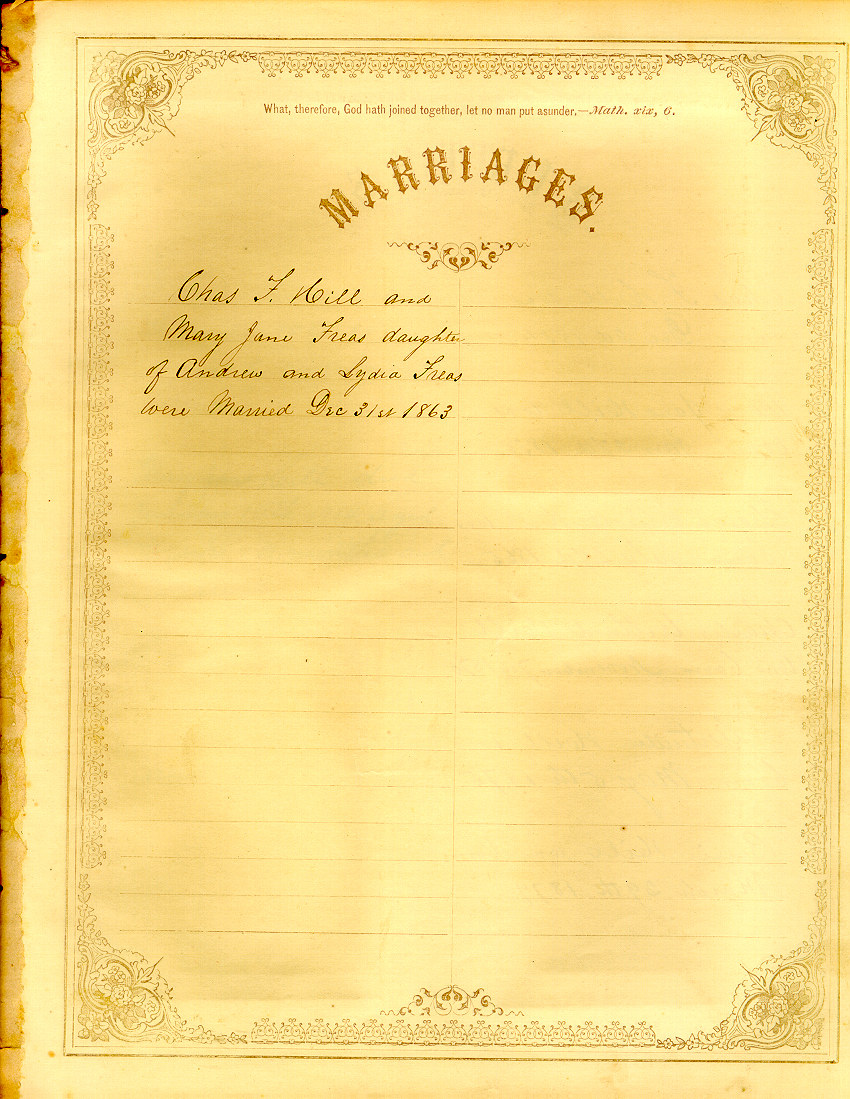 What, therefore, God hath joined together, let no man put asunder.—Math. xix, 6.
MARRIAGES.
Chas F. Hill and
Mary Jane Freas daughter
of Andrew and Lydia Freas
were Married Dec 31st 1863